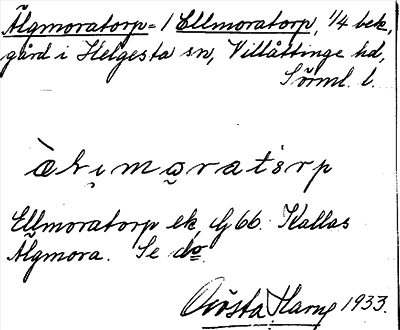 Älgmoratorp = / Ellmoratorp, 1/4 bek.
gård i Helgesta sn, Villåttinge hd,
Sörml. l.
Ellmoratorp ek. G 66. Kallas
Älgmora. Se do.
Gösta Harne 1933.